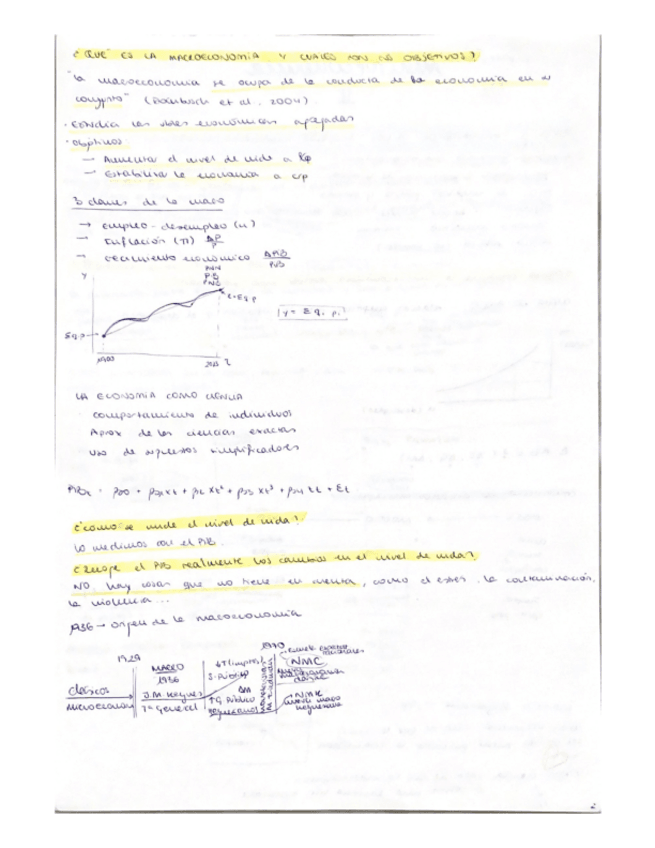 ¿QUÉ ES LA MACROECONOMÍA Y CUALES SON SUS OBJETIVOS?
"la macroeconomía se ocupa de la conducta de la economía en su
conjunto" (Dornbusch et al., 2004)
· Estudia las vbles económicas agregadas
· Objetivos:
→ Aumentar el nivel de vida a lp
→ Estabilizar la economía a c/p
3 claves de la macro
→ empleo - desempleo (u)
→ Inflación (π) ΔP/P
→ crecimiento económico ΔPIB/PIB
PIB
Y
Y = Σ qi pi
2023 t
LA ECONOMÍA COMO CIENCIA
comportamiento de individuos
Aprox de las ciencias exactas
uso de supuestos simplificadores
¿como se mide el nivel de vida?
lo medimos con el PIB.
¿Recoge el PIB realmente los cambios en el nivel de vida?
NO, hay cosas que no tiene en cuenta, como el estrés, la contaminación,
la violencia...
1936 → origen de la macroeconomía
1929
MACRO
1936
clásicos
microeconomía
J.M. Keynes
Tª General
↑G. Público
keynesianos
1970
NMC
NMK